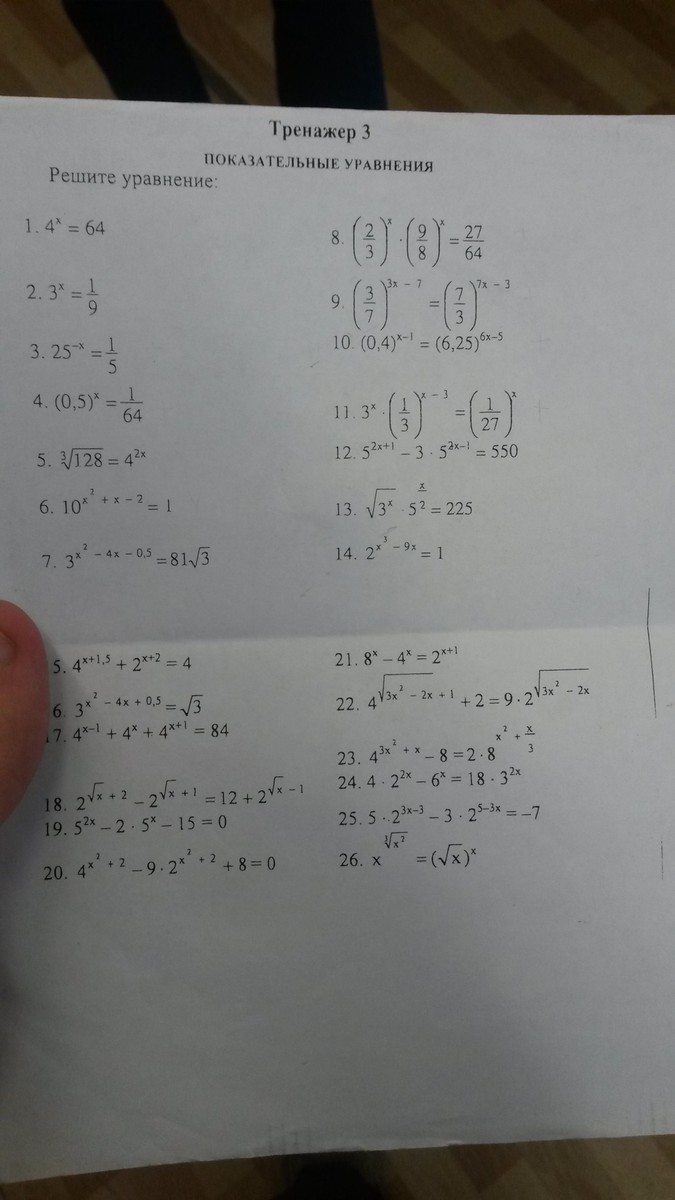 Тренажер 3
ПОКАЗАТЕЛЬНЫЕ УРАВНЕНИЯ
Решите уравнение:
1. 4^x = 64
2. 3^x = 1/9
3. 25^(-x) = 1/5
4. (0,5)^x = 1/64
5. ∛128 = 4^(2x)
6. 10^(x² + x − 2) = 1
7. 3^(x² − 4x − 0,5) = 81√3
8. (2/3)^x · (9/8)^x = 27/64
9. (3/7)^(3x − 7) = (7/3)^(7x − 3)
10. (0,4)^(x−1) = (6,25)^(6x−5)
11. 3^x · (1/3)^(x − 3) = (1/27)^x
12. 5^(2x+1) − 3 · 5^(2x−1) = 550
13. √(3^x) · 5^(x/2) = 225
14. 2^(x³ − 9x) = 1
5. 4^(x+1,5) + 2^(x+2) = 4
6. 3^(x² − 4x + 0,5) = √3
7. 4^(x−1) + 4^x + 4^(x+1) = 84
18. 2^(√x + 2) − 2^(√x + 1) = 12 + 2^(√x − 1)
19. 5^(2x) − 2 · 5^x − 15 = 0
20. 4^(x² + 2) − 9 · 2^(x² + 2) + 8 = 0
21. 8^x − 4^x = 2^(x+1)
22. 4^(√(3x² − 2x) + 1) + 2 = 9 · 2^(√(3x² − 2x))
23. 4^(3x² + x) − 8 = 2 · 8^(x² + x/3)
24. 4 · 2^(2x) − 6^x = 18 · 3^(2x)
25. 5 · 2^(3x−3) − 3 · 2^(5−3x) = −7
26. x^(∛(x²)) = (√x)^x